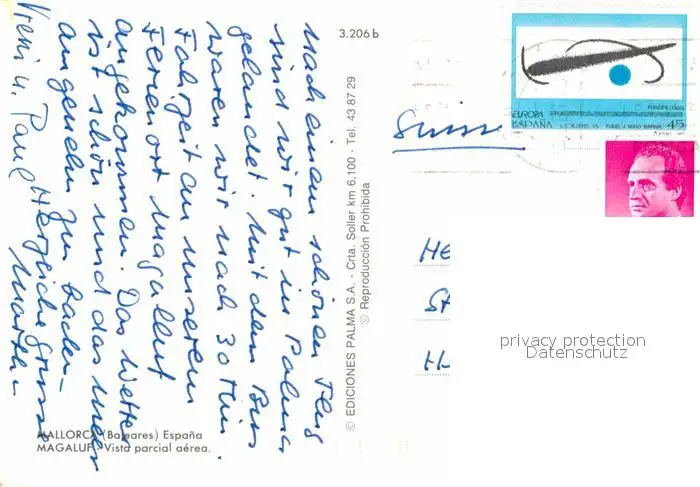 Nach einem schönen Flug
sind wir gut in Palma
gelandet. Mit dem Bus
waren wir nach 30 Min.
Fahrzeit an unserem
Ferienort Magalluf
angekommen. Das Wetter
ist schön und das Meer
angenehm zum baden.
Herzliche Grüsse
Vreni u. Paul
3.206 b
© EDICIONES PALMA S.A. - Crta. Soller km 6,100 - Tel. 43 87 29
© Reproducción Prohibida
MALLORCA (Baleares) España
MAGALUF. Vista parcial aérea.
EUROPA
ESPAÑA
45
Suisse
HE
St
privacy protection
Datenschutz